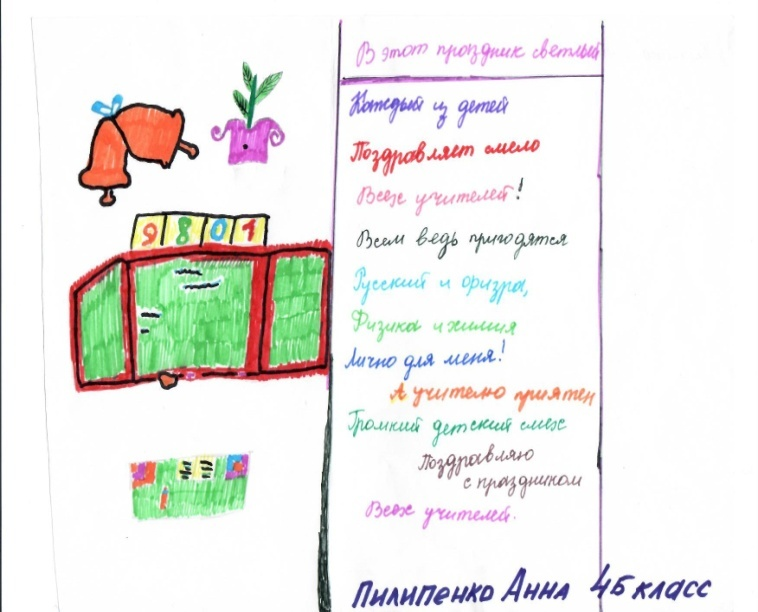 В этот праздник светлый
Каждый из детей
Поздравляет смело
Всех учителей!
Всем ведь пригодятся
Русский и физра,
Физика и химия
Лично для меня!
А учителю приятен
Громкий детский смех
Поздравляю
с праздником
Всех учителей.
9801
Пилипенко Анна 4Б класс